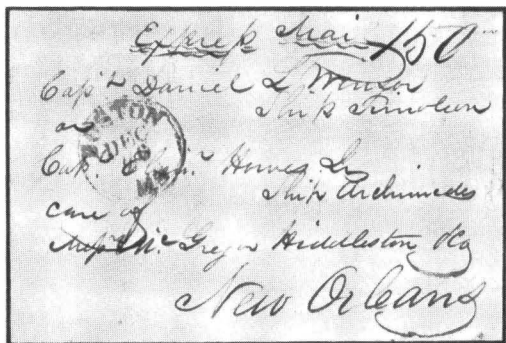 Express Mail 150
Capt. Daniel L Winsor
Ship Timoleon
or
Capt. Howes Jr
Ship Archimedes
care of
Mess Mc Gregor Hiddleston & Co
New Orleans
DEC